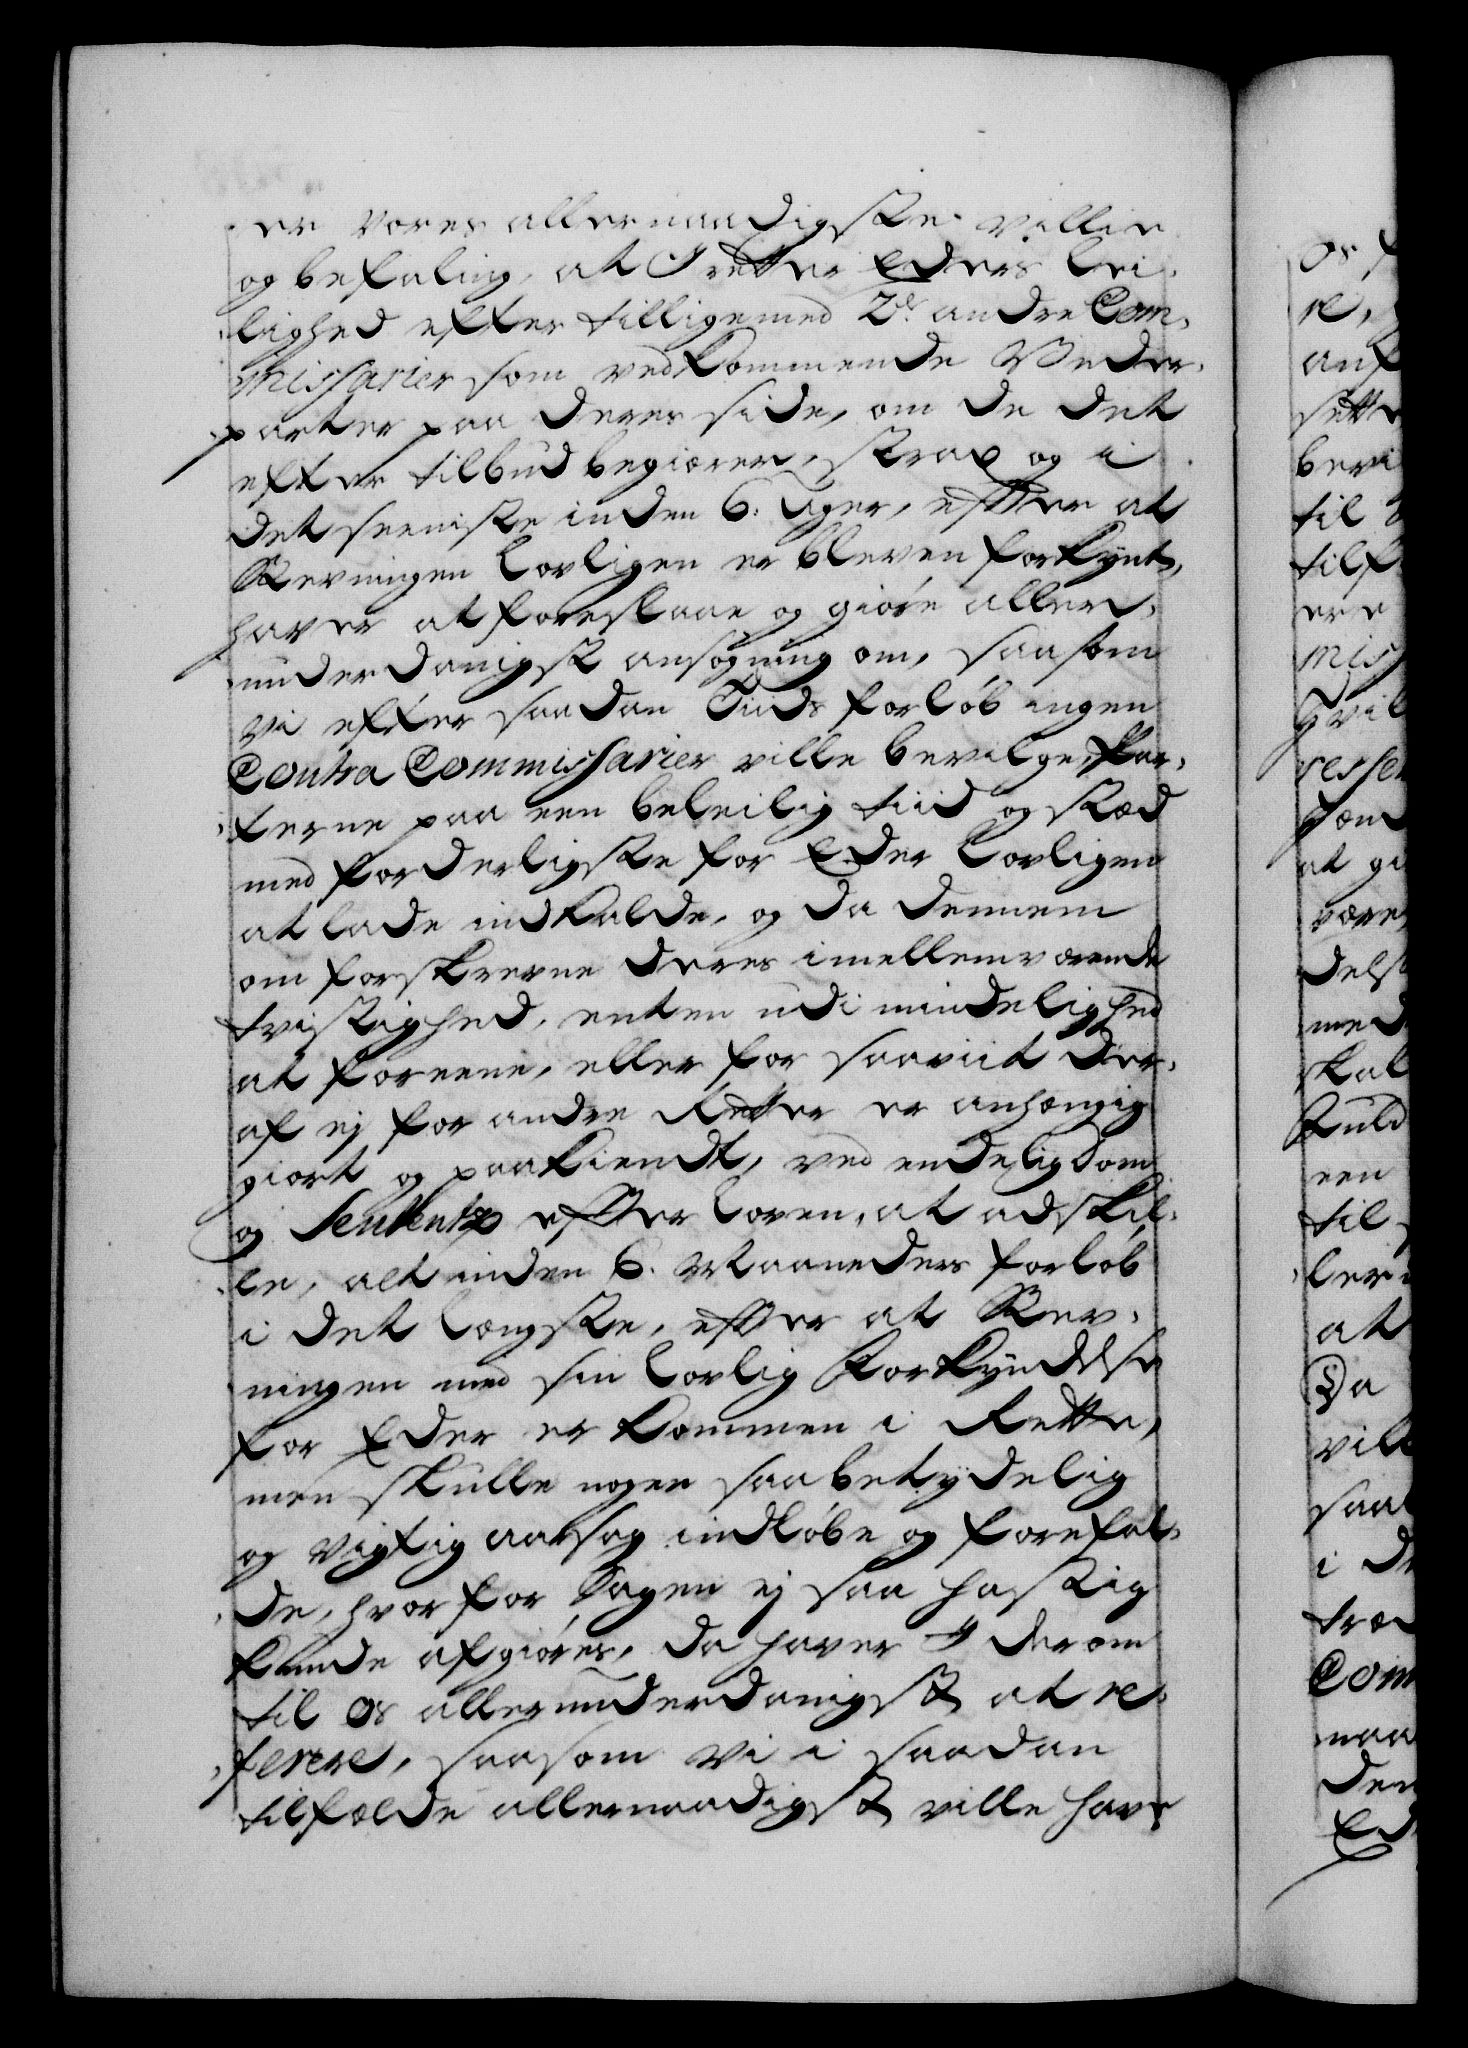 er vores allernaadigste villie
og befaling, at I retter Eders lei,
lighed efter tilligemed 2de andre Com,
missarier som vedkommende Veder,
parter paa deres side, om de det
efter tilbud begiærer, strax og i
det seeniste inden 6. Uger, efter at
Stevningen lovligen er bleven forkynt,
haver at foreslaae og giøre aller,
underdanigst ansøgning om, saasom
vi efter saadan Tiids forløb ingen
Contra Commissarier ville bevilge, Par,
terne paa een beleilig tiid og stæd
med forderligste for Eder lovligen
at lade indkalde, og da dennem
om forskrevne deres imellemværende
tvistighed, enten udi mindelighed
at foreene, eller for saaviit der,
af ej for andre Retter er anhængig
giort og paakiendt, ved endelig dom
og Sententz efter loven, at adskil,
le, alt inden 6. Maaneders forløb
i det længste, efter at Stev,
ningen med sin lovlig Forkyndelse
for Eder er kommen i Rette,
men skulle nogen saa betydelig
og vigtig aarsag indløbe og forefal,
de, hvorfor Sagen ej saa hastig
kunde afgiøres, da haver I derom
til os allerunderdanigst at re,
ferere, saasom vi i saadan
tilfælde allernaadigst ville have